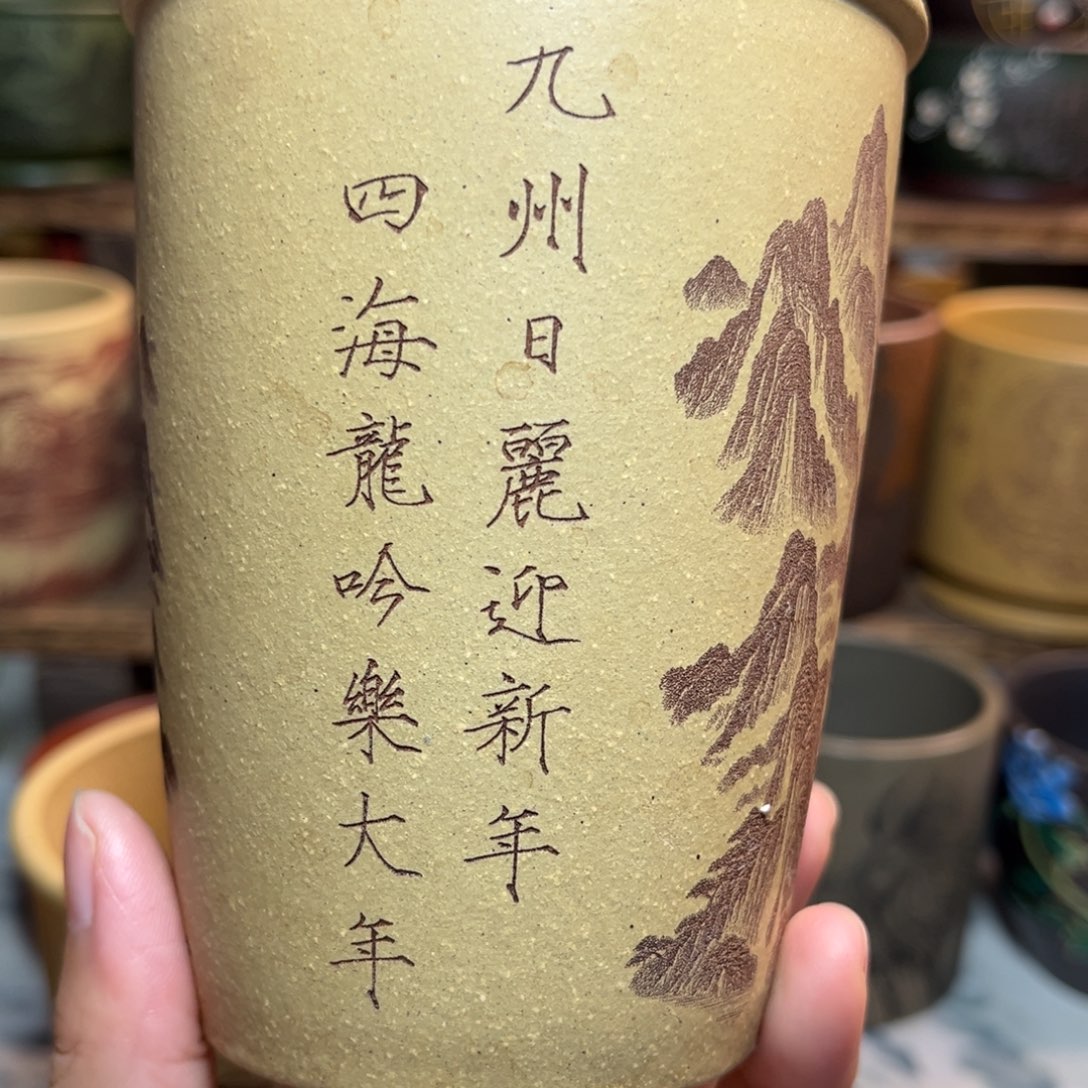 九州日麗迎新年
四海龍吟樂大年